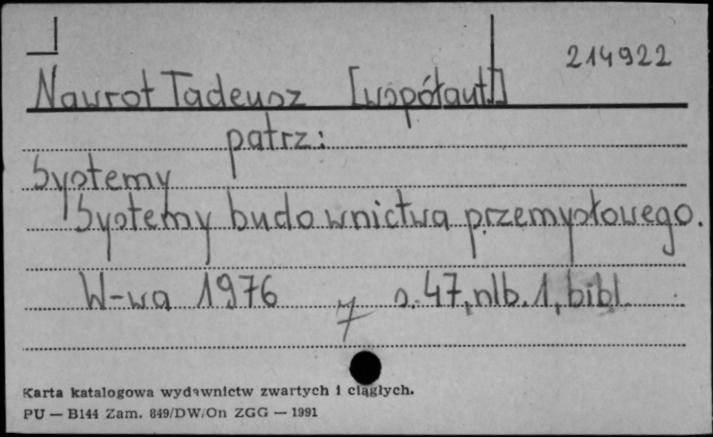 214922
Nawrot Tadeusz [współaut.]
patrz:
Systemy
Systemy budownictwa przemysłowego.
W-wa 1976 7 s. 47, nlb. 1, bibl.
Karta katalogowa wydawnictw zwartych i ciągłych.
PU — B144 Zam. 849/DW/On ZGG — 1991